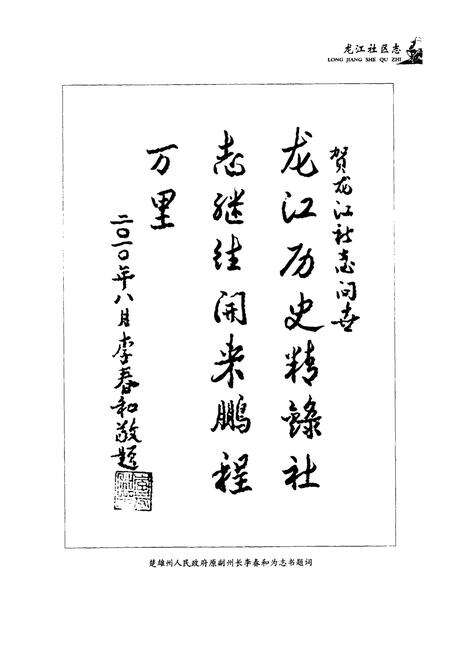 龙江社区志
LONG JIANG SHE QU ZHI
贺龙江社志问世
龙江历史精录社
志继往开来鹏程
万里
二〇一〇年八月李春和敬题
楚雄州人民政府原副州长李春和为志书题词